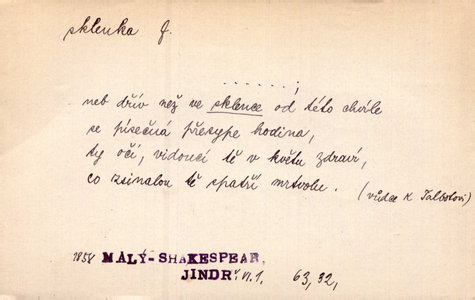 sklenka f.
. . . . . . ;
neb dřív než ve sklence od této chvíle
se písečná přesype hodina,
ty oči, vidoucí tě v květu zdraví,
co zsinalou tě spatří mrtvolu. (vůdce k Talbotovi)
1858 MALÝ-SHAKESPEAR,
JINDŘ. VI. 1. 63, 32,